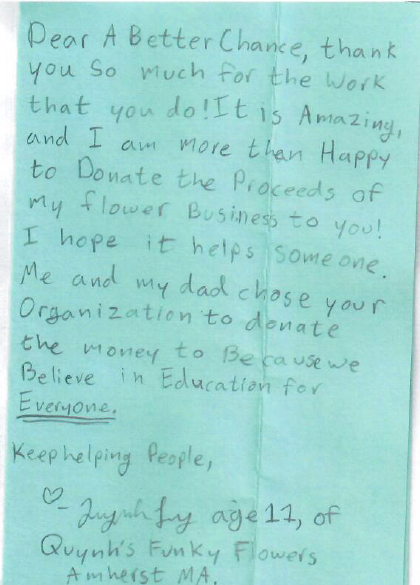 Dear A Better Chance, thank
you So much for the Work
that you do! It is Amazing,
and I am more than Happy
to Donate the Proceeds of
My flower Business to you!
I hope it helps someone.
Me and my dad chose your
Organization to donate
the money to Because we
Believe in Education for
Everyone.
Keep helping People,
♡- Quynh Ly age 11, of
Quynh's Funky Flowers
Amherst MA.